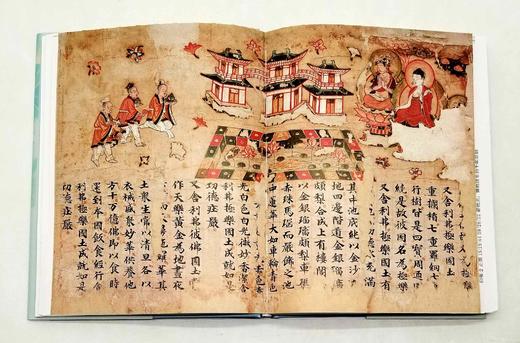 又舍利弗極樂國土
重欄楯七重羅網七
行樹皆是四寶周迊
繞是故彼國名為極樂
又舍利弗極樂國土有
功德水充滿
其中池底純以金沙
地四邊階道金銀瑠璃
頗梨合成上有樓閣
以金銀瑠璃頗梨車璖
赤珠馬瑙而嚴飾之池
中蓮華大如車輪青色
光白色白光微妙香潔舍
利弗極樂國土成就如是
功德莊嚴
又舍利弗彼佛國土
作天樂黃金為地晝夜
羅華其
土眾生常以清旦各以
衣裓盛眾妙華供養他
方十万億佛即以食時
還到本國飯食經行舍
利弗極樂國土成就如是
功德莊嚴